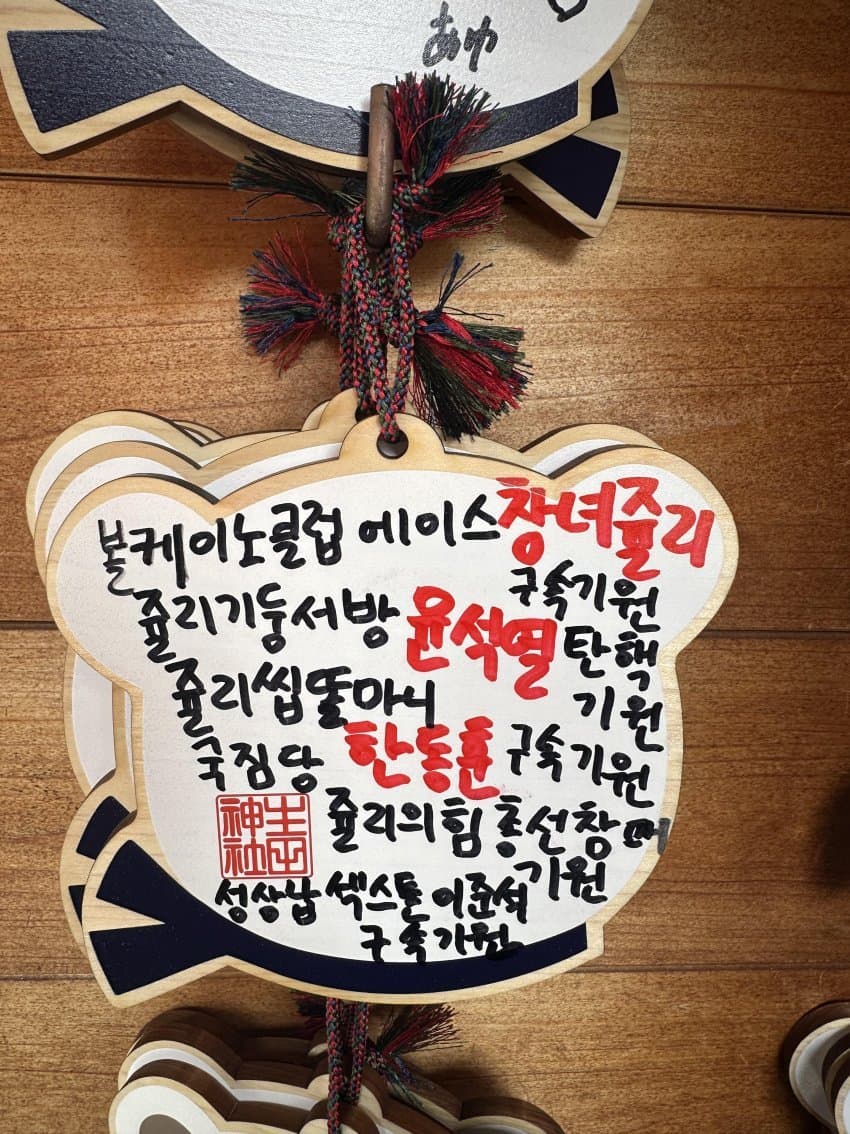 あゆ
볼케이노클럽 에이스창녀쥴리
구속기원
쥴리기둥서방 윤석열 탄핵
기원
쥴리씹똘마니
국짐당 한동훈 구속기원
쥴리의힘 총선참패
기원
生田神社
성상납 섹스톤 이준석
구속기원